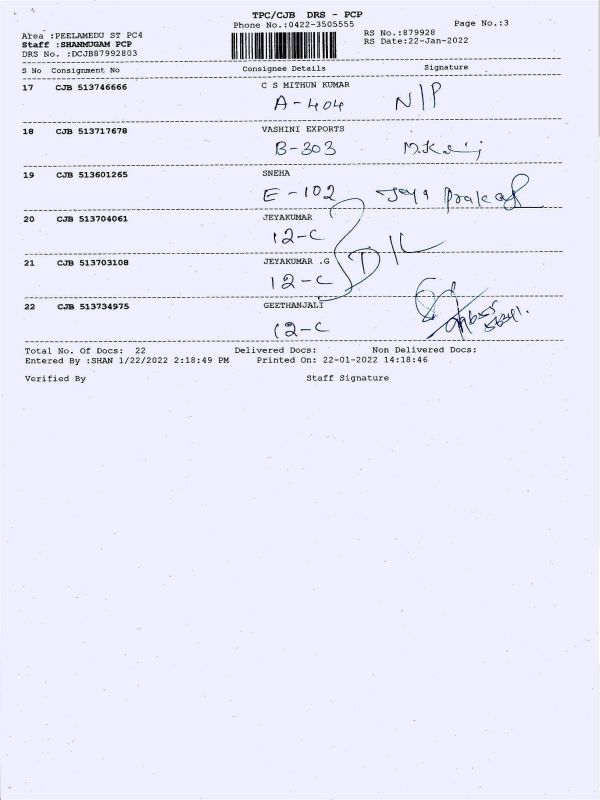 TPC/CJB DRS - PCP
Phone No.:0422-3505555
Page No.:3
Area :PEELAMEDU ST PC4
RS No.:879928
Staff :SHANMUGAM PCP
RS Date:22-Jan-2022
DRS No. :DCJB87992803
S No Consignment No Consignee Details Signature
17 CJB 513746666 C S MITHUN KUMAR
A-404 N/P
18 CJB 513717678 VASHINI EXPORTS
B-303
19 CJB 513601265 SNEHA
E-102 Jaya Prakash
20 CJB 513704061 JEYAKUMAR
12-C
21 CJB 513703108 JEYAKUMAR .G
12-C
22 CJB 513734975 GEETHANJALI
12-C
Total No. Of Docs: 22 Delivered Docs: Non Delivered Docs:
Entered By :SHAN 1/22/2022 2:18:49 PM Printed On: 22-01-2022 14:18:46
Verified By Staff Signature